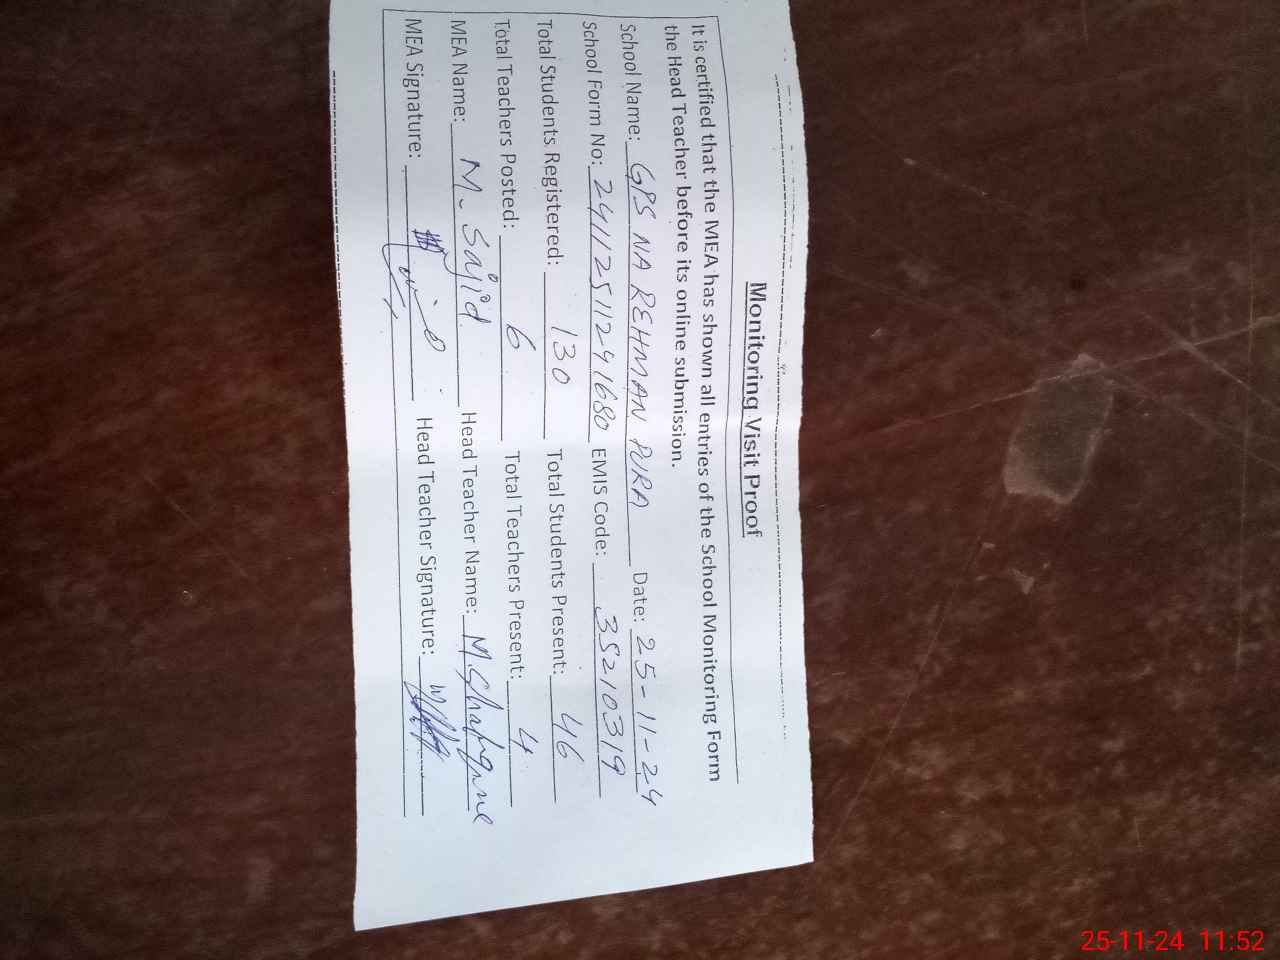 Monitoring Visit Proof
It is certified that the MEA has shown all entries of the School Monitoring Form
the Head Teacher before its online submission.
School Name: GPS NA REHMAN PURA Date: 25-11-24
School Form No: 241125112941680 EMIS Code: 35210319
Total Students Registered: 130 Total Students Present: 46
Total Teachers Posted: 6 Total Teachers Present: 4
MEA Name: M. Sajid Head Teacher Name: M.
MEA Signature: Head Teacher Signature:
25-11-24 11:52